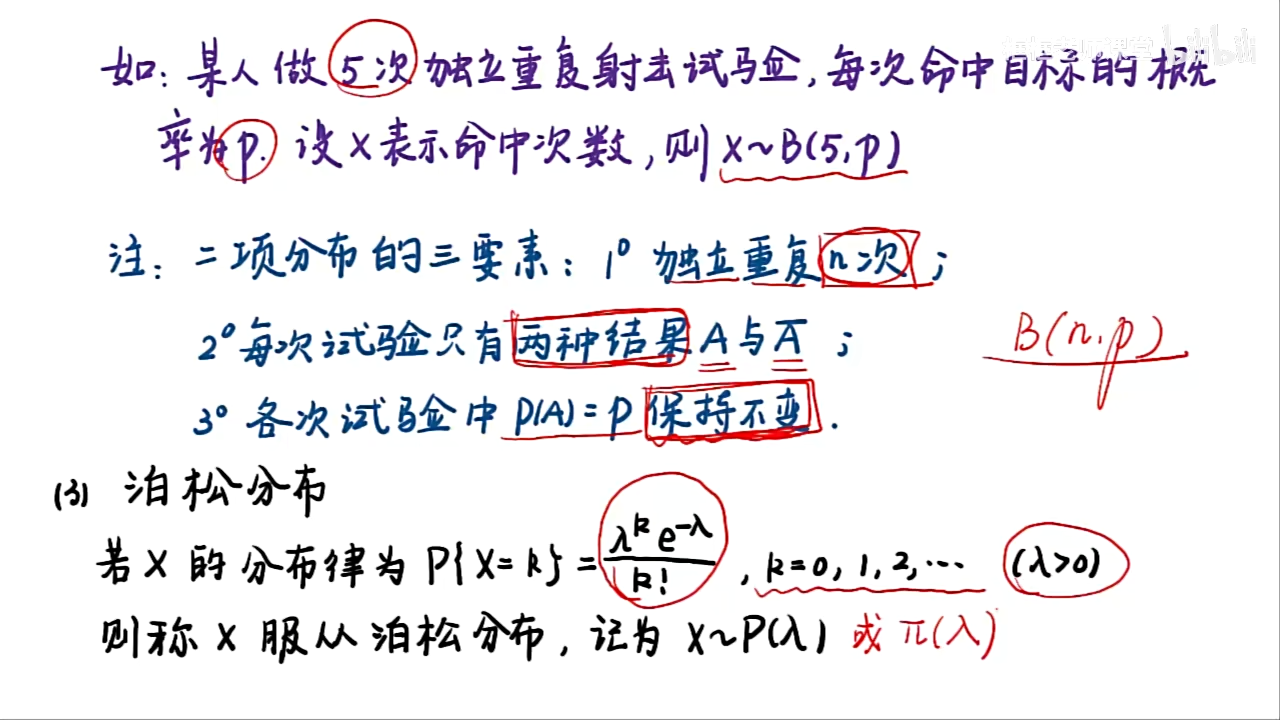 如：某人做5次独立重复射击试验，每次命中目标的概
率为p. 设X表示命中次数，则X~B(5,p)
注：二项分布的三要素：1° 独立重复n次；
2° 每次试验只有两种结果A与A̅；
B(n,p)
3° 各次试验中P(A)=p保持不变.
(3) 泊松分布
若X的分布律为P{X=k}=λ^k e^{-λ}/k!, k=0,1,2,… (λ>0)
则称X服从泊松分布，记为X~P(λ) 或π(λ)